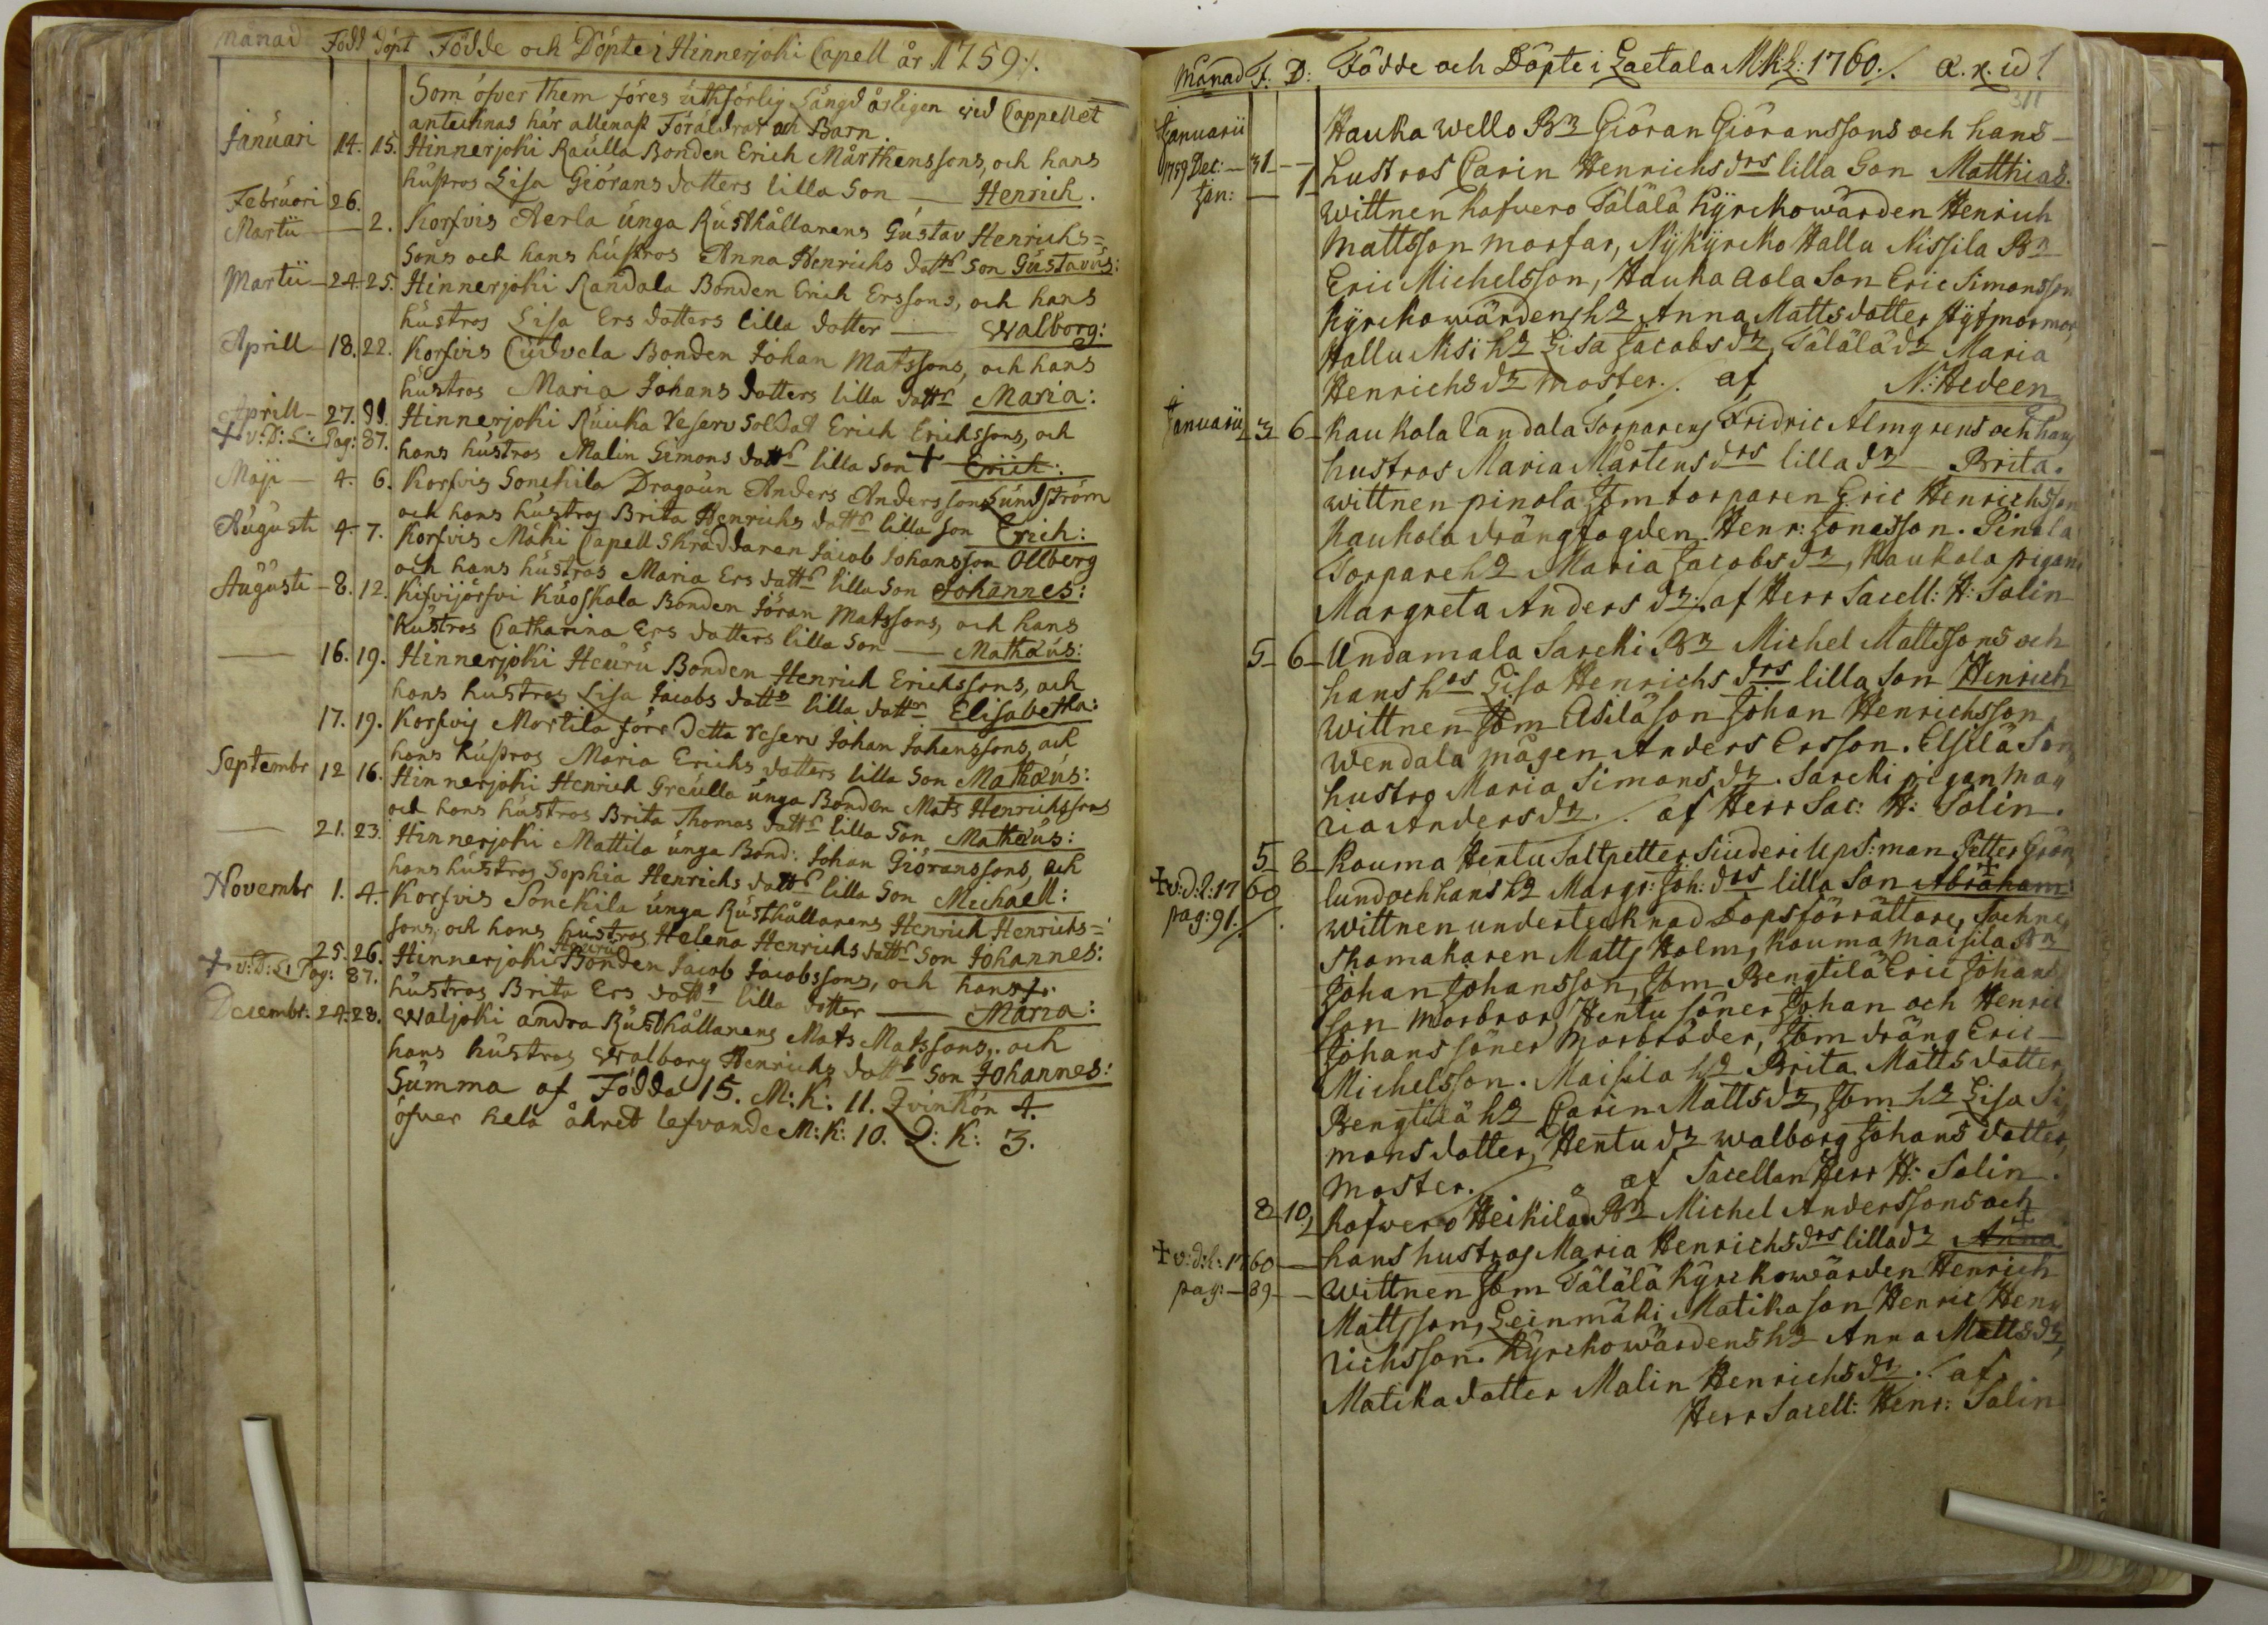 Månad Född Döpt Födde och Döpte i Hinnerjoki Capell år 1759./.
Som öfver them föres uthförlig Längd årligen wid Cappellet
antecknas här allenast Föräldrar och Barn.
Januari 14. 15. Hinnerjoki Raulla Bonden Erich Mårthenssons, och hans
hustros Lisa Giörans dotters lilla Son — Henrich.
Februari 26.
Martii — 2. Korfvis Aerla unga Rusthållarens Gustav Henrichs=
Sons och hans hustros Anna Henrichs dottr Son Gustavus:
Martii — 24. 25. Hinnerjoki Randala Bonden Erich Erssons, och hans
hustros Lisa Ers dotters lilla dotter — Walborg:
Aprill — 18. 22. Korfvis Cudvela Bonden Johan Matssons, och hans
hustros Maria Johans dotters lilla dottr Maria:
Aprill — 27. 29. Hinnerjoki Ruuka reserv Soldat Erich Erichssons, och
+ v: D: L: Pag: 87. hans hustros Malin Simons dottr lilla Son + Erich:
Maji — 4. 6. Korfvis Sonckila Dragoun Anders Anderssons Lundström
och hans hustros Brita Henrichs dottr lilla Son Erich:
Augusti 4. 7. Korfvis Mäki Capell Skräddaren Jacob Johansson Ollberg
och hans hustros Maria Ers dottr lilla Son Johannes:
Augusti — 8. 12. Kifvijärfvi Kuoskala Bonden Jöran Matssons, och hans
hustros Catharina Ers dotters lilla Son — Mathæus:
— 16. 19. Hinnerjoki Heuru Bonden Henrich Erichssons, och
hans hustros Lisa Jacobs dottr lilla dottr Elisabetha:
17. 19. Korfvis Mortila förr detta reserv Johan Johanssons, och
hans hustros Maria Erichs dotters lilla Son Mathæus:
Septembr 12 16. Hinnerjoki Henrich Greulla unga Bonden Mats Henrichssons
och hans hustros Brita Thomas dottr lilla Son Mathæus:
— 21. 23. Hinnerjoki Mattila unga Bond: Johan Giöranssons, och
hans hustros Sophia Henrichs dottr lilla Son Michaell:
Novembr 1. 4. Korfvis Sonckila unga Rusthållarens Henrich Henrichs=
sons, och hans hustros Helena Henrichs dottr Son Johannes:
25. 26. Hinnerjoki Heuru Bonden Jacob Jacobssons, och hans
+ v: D: L: Pag: 87. hustros Brita Ers dottr lilla dotter — + Maria:
Decembr. 24. 28. Waljoki andra Rusthållarens Mats Matssons, och
hans hustros Walborg Henrichs dottr Son Johannes:
Summa af Födda 15. M: K: 11. Qvinkön 4.
öfver hela åhret lefvande M: K: 10. Q: K: 3.
Månad F: D: Födde och Döpte i Laetala M:K:L: 1760./.
311
Januarii Hauka Wello Bn Giöran Giöranssons och hans
1759 Dec: — 31 — hustros Carin Henrichs drs lilla Son Matthias.
Jan: — 1 wittnen Kafvero Tälälä Kyrckowärden Henrich
Mattsson morfar, Nykyrcko Hallu Nissila Bn
Eric Michelsson, Hauka Aola Son Eric Simonsson
Kyrckowärdens ha Anna Matts dotter Styfmormor
Hallu Nisi ha Lisa Jacobs dr, Tälälä dr Maria
Henrichs dr moster./. af N: Hedeen
Januarii 3 6 Kaukola Landala Torparens Fridric Almgrens och hans
hustros Maria Mårtens drs lilla dr — Brita.
wittnen pinola Jtm torparen Eric Henrichsson
Kaukola drängfogden Henr: Jonasson. Pinola
Torpare ha Maria Jacobs dr, Kaukola pigan
Margreta Anders dr./. af Herr Sacell: H: Salin
5 6 Undamala Sarcki Bn Michel Mattssons och
hans hos Lisa Henrichs drs lilla Son Henrich
wittnen Jtm Elsilä son Johan Henrichsson
Wendala mågen Anders Ersson. Elsilä Son
hustro Maria Simons dr. Sarcki pigan Ma„
ria Anders dr./. af Herr Sac: H: Salin.
5 8 Rauma Hentu Saltpetter Siuderi UpS:man Petter Grön
+ v: d: l: 1760 lund och hans ha Margr: Joh: drs lilla Son + Abraham
pag: 91./. wittnen undertecknad Dopsförrättare, Sochne
Skomakaren Matts Holm, Kauma Maisila Bn
Johan Johansson, Jtm Bengtilä Eric Johans
son Morbror, Hentu söner Johan och Henric
Johans söner Morbröder, Jtm dräng Eric
Michelsson. Maisila ha Brita Matts dotter
Bengtilä ha Carin Matts dr, Jtm ha Lisa Si„
mons dotter, Hentu dr Walborg Johans dotter,
moster./. af Sacellan Herr H: Salin.
8 10 Kafvero Heikilä Bn Michel Anderssons och
+ v: d: l: 1760 — hans hustros Maria Henrichs drs lilla dr + Anna
pag: — 89 — wittnen Jtm Tälälä Kyrckowärden Henrich
Mattsson, Leinmäki Matika son Henric Hen„
richsson. Kyrckowärdens ha Anna Matts dr,
Matika dotter Malin Henrichs dr./. af
Herr Sacell: Henr: Salin